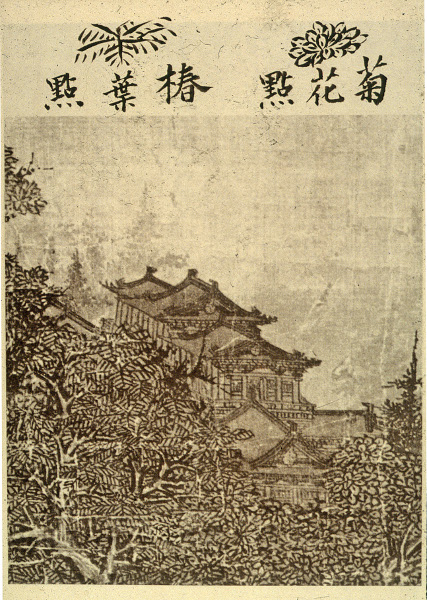 菊花點
椿葉點